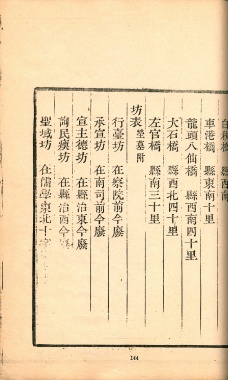 車港橋 縣東南十里
龍頭八仙橋 縣西南四十里
大石橋 縣西北四十里
左官橋 縣南三十里
坊表 塋墓附
行臺坊 在察院前今廢
承宣坊 在南司前今廢
宣主德坊 在縣治東今廢
詢民瘼坊 在縣治西今廢
聖域坊 在儒學東北十字
144